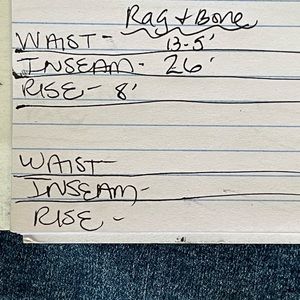 Rag & Bone
WAIST - 13.5'
INSEAM - 26'
RISE - 8'
WAIST -
INSEAM -
RISE -